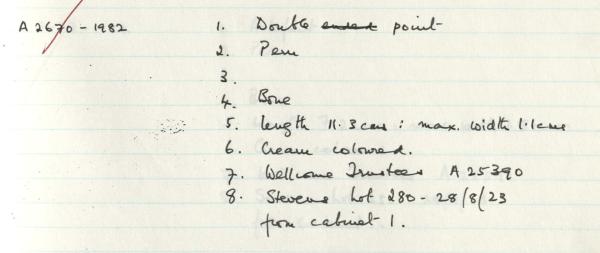 A 2670 - 1982
1. Double ended point
2. Peru
3.
4. Bone
5. length 11.3cms : max. width 1.1cms
6. Cream coloured.
7. Wellcome Trustees A 25390
8. Stevens Lot 280 - 28/8/23
from cabinet 1.